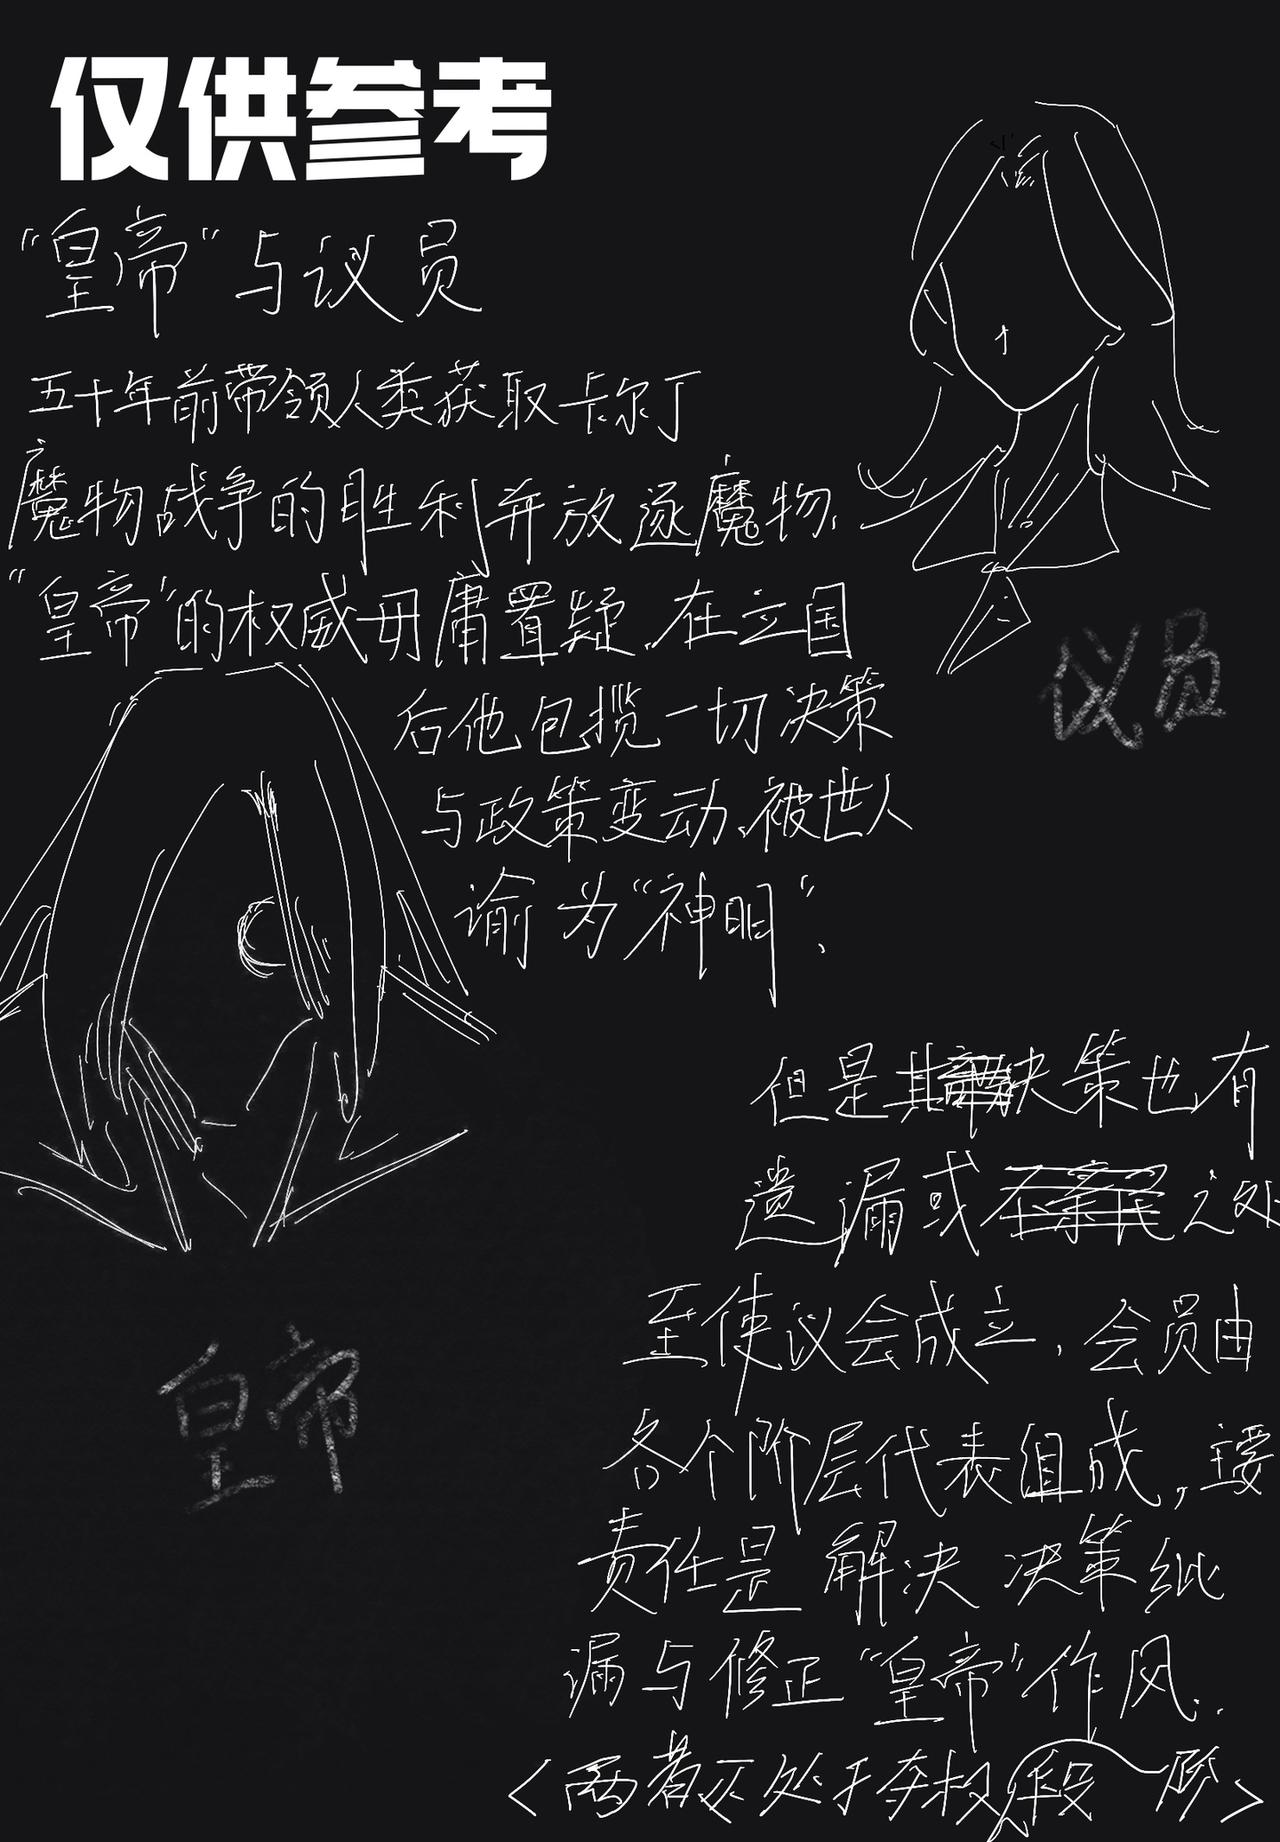 仅供参考
“皇帝“与议员
五十年前带领人类获取卡尔丁
魔物战争的胜利并放逐魔物.
“皇帝’的权威毋庸置疑.在立国
后他包揽一切决策
与政策变动.被世人
谕为“神明“.
议员
皇帝
但是其决策也有
遗漏或之处
至使议会成立.会员由
各个阶层代表组成,主要
责任是解决决策纰
漏与修正“皇帝’作风..
<两者正处于夺权阶段>